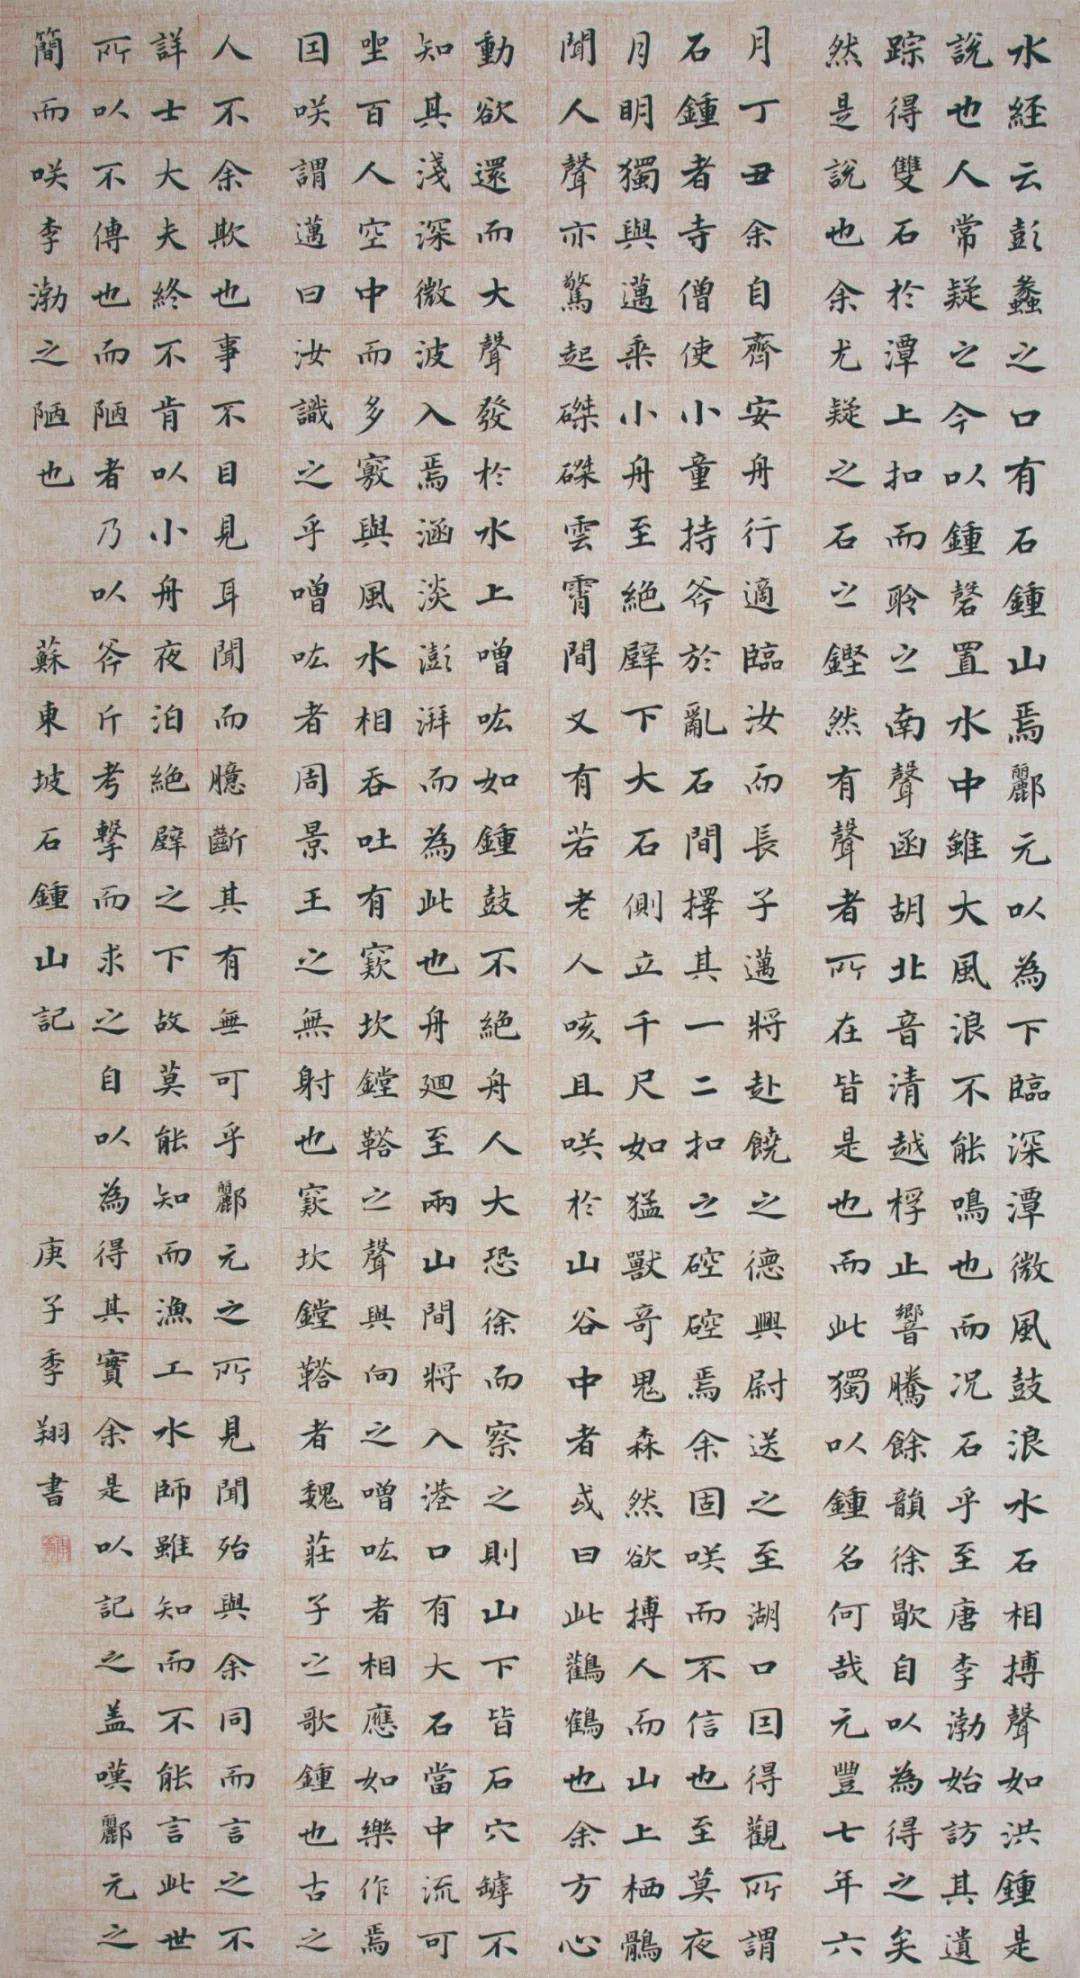 水經云彭蠡之口有石鍾山焉酈元以為下臨深潭微風鼓浪水石相搏聲如洪鍾是
說也人常疑之今以鍾磬置水中雖大風浪不能鳴也而況石乎至唐李渤始訪其遺
踪得雙石於潭上扣而聆之南聲函胡北音清越桴止響騰餘韻徐歇自以為得之矣
然是說也余尤疑之石之鏗然有聲者所在皆是也而此獨以鍾名何哉元豐七年六
月丁丑余自齊安舟行適臨汝而長子邁將赴饒之德興尉送之至湖口因得觀所謂
石鍾者寺僧使小童持斧於亂石間擇其一二扣之硿硿焉余固咲而不信也至莫夜
月明獨與邁乘小舟至絕壁下大石側立千尺如猛獸奇鬼森然欲搏人而山上栖鶻
聞人聲亦驚起磔磔雲霄間又有若老人咳且咲於山谷中者或曰此鸛鶴也余方心
動欲還而大聲發於水上噌吰如鍾鼓不絕舟人大恐徐而察之則山下皆石穴罅不
知其淺深微波入焉涵淡澎湃而為此也舟迴至兩山間將入港口有大石當中流可
坐百人空中而多竅與風水相吞吐有窾坎鏜鞳之聲與向之噌吰者相應如樂作焉
因咲謂邁曰汝識之乎噌吰者周景王之無射也窾坎鏜鞳者魏莊子之歌鍾也古之
人不余欺也事不目見耳聞而臆斷其有無可乎酈元之所見聞殆與余同而言之不
詳士大夫終不肯以小舟夜泊絕壁之下故莫能知而漁工水師雖知而不能言此世
所以不傳也而陋者乃以斧斤考擊而求之自以為得其實余是以記之盖嘆酈元之
簡而咲李渤之陋也 蘇東坡石鍾山記 庚子季翔書